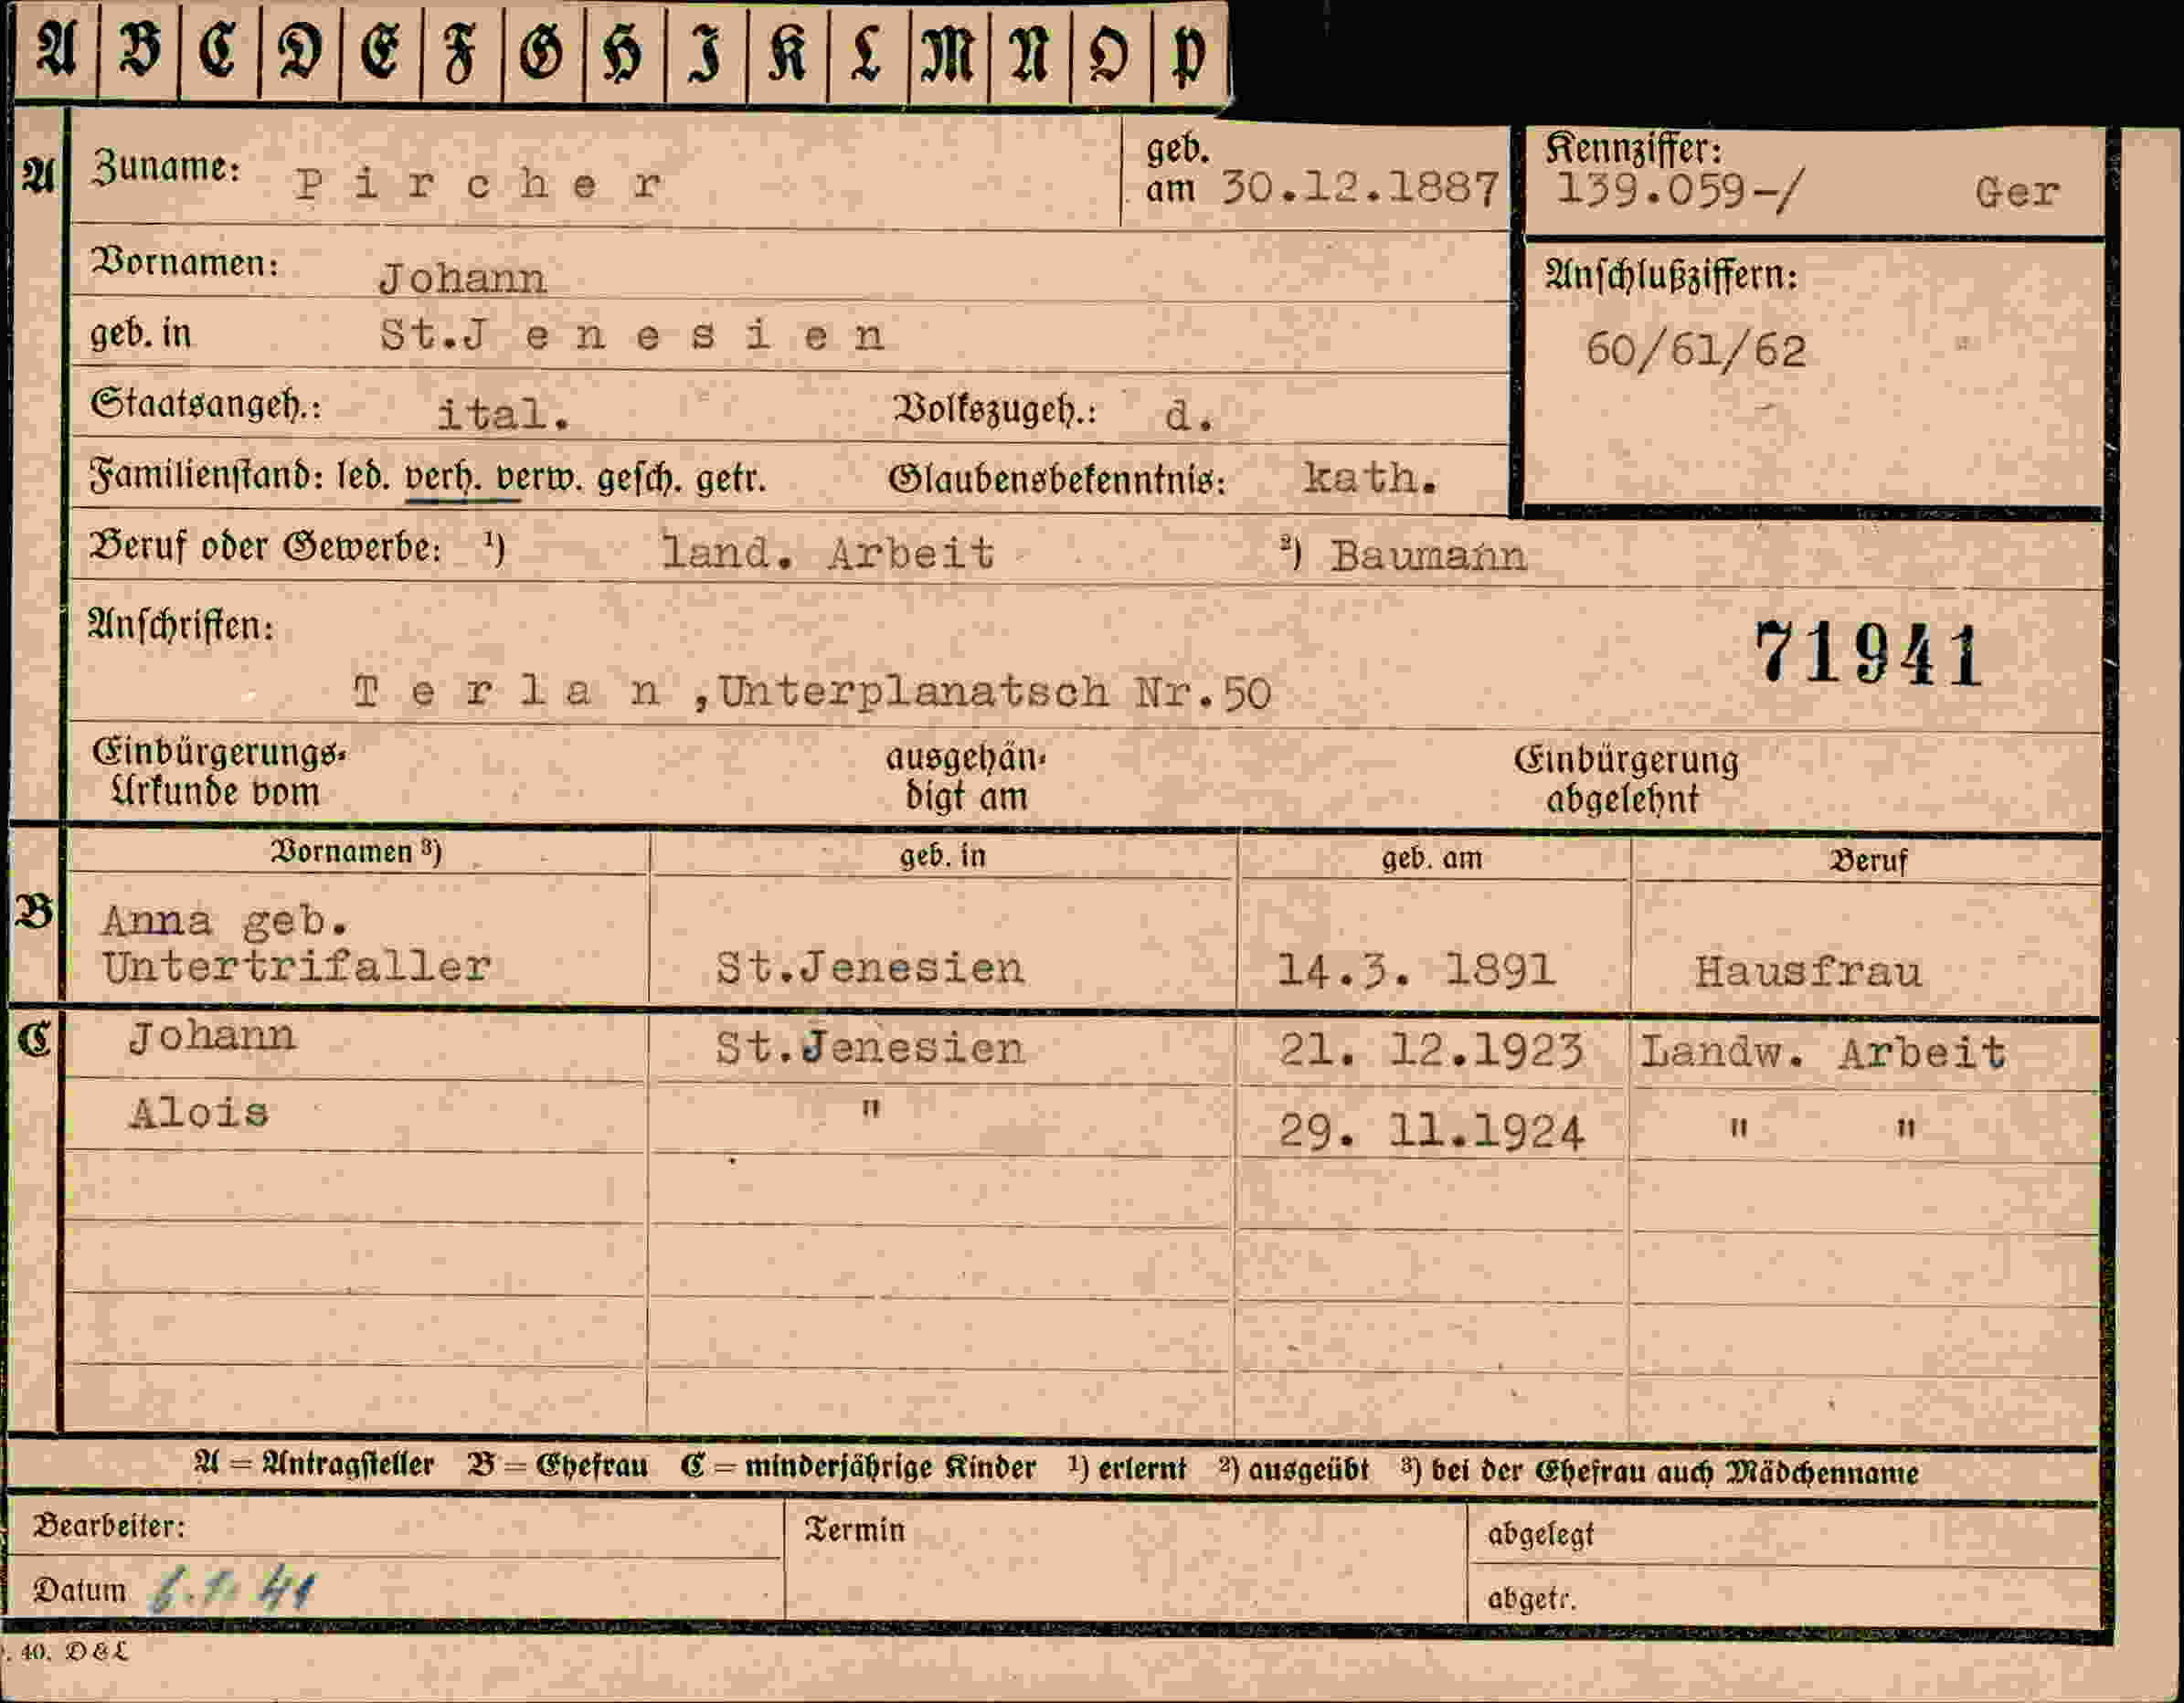 A B C D E F G H I K L M N O P
A Zuname: P i r c h e r geb. am 30.12.1887 Kennziffer: 139.059-/ Ger
Vornamen: Johann
Anschlußziffern:
geb. in St.J e n e s i e n
60/61/62
Staatsangeh.: ital. Volkszugeh.: d.
Familienstand: led. verh. verw. gesch. getr. Glaubensbekenntnis: kath.
Beruf oder Gewerbe: ¹) land. Arbeit ²) Baumann
Anschriften:
71941
T e r l a n ,Unterplanatsch Nr.50
Einbürgerungs- ausgehän- Einbürgerung
Urkunde vom digt am abgelehnt
Vornamen ³) geb. in geb. am Beruf
B Anna geb.
Untertrifaller St.Jenesien 14.3. 1891 Hausfrau
C Johann St.Jenesien 21. 12.1923 Landw. Arbeit
Alois " 29. 11.1924 " "
A = Antragsteller B = Ehefrau C = minderjährige Kinder ¹) erlernt ²) ausgeübt ³) bei der Ehefrau auch Mädchenname
Bearbeiter: Termin abgelegt
Datum 6.1. 41 abgetr.
. 40. D & L